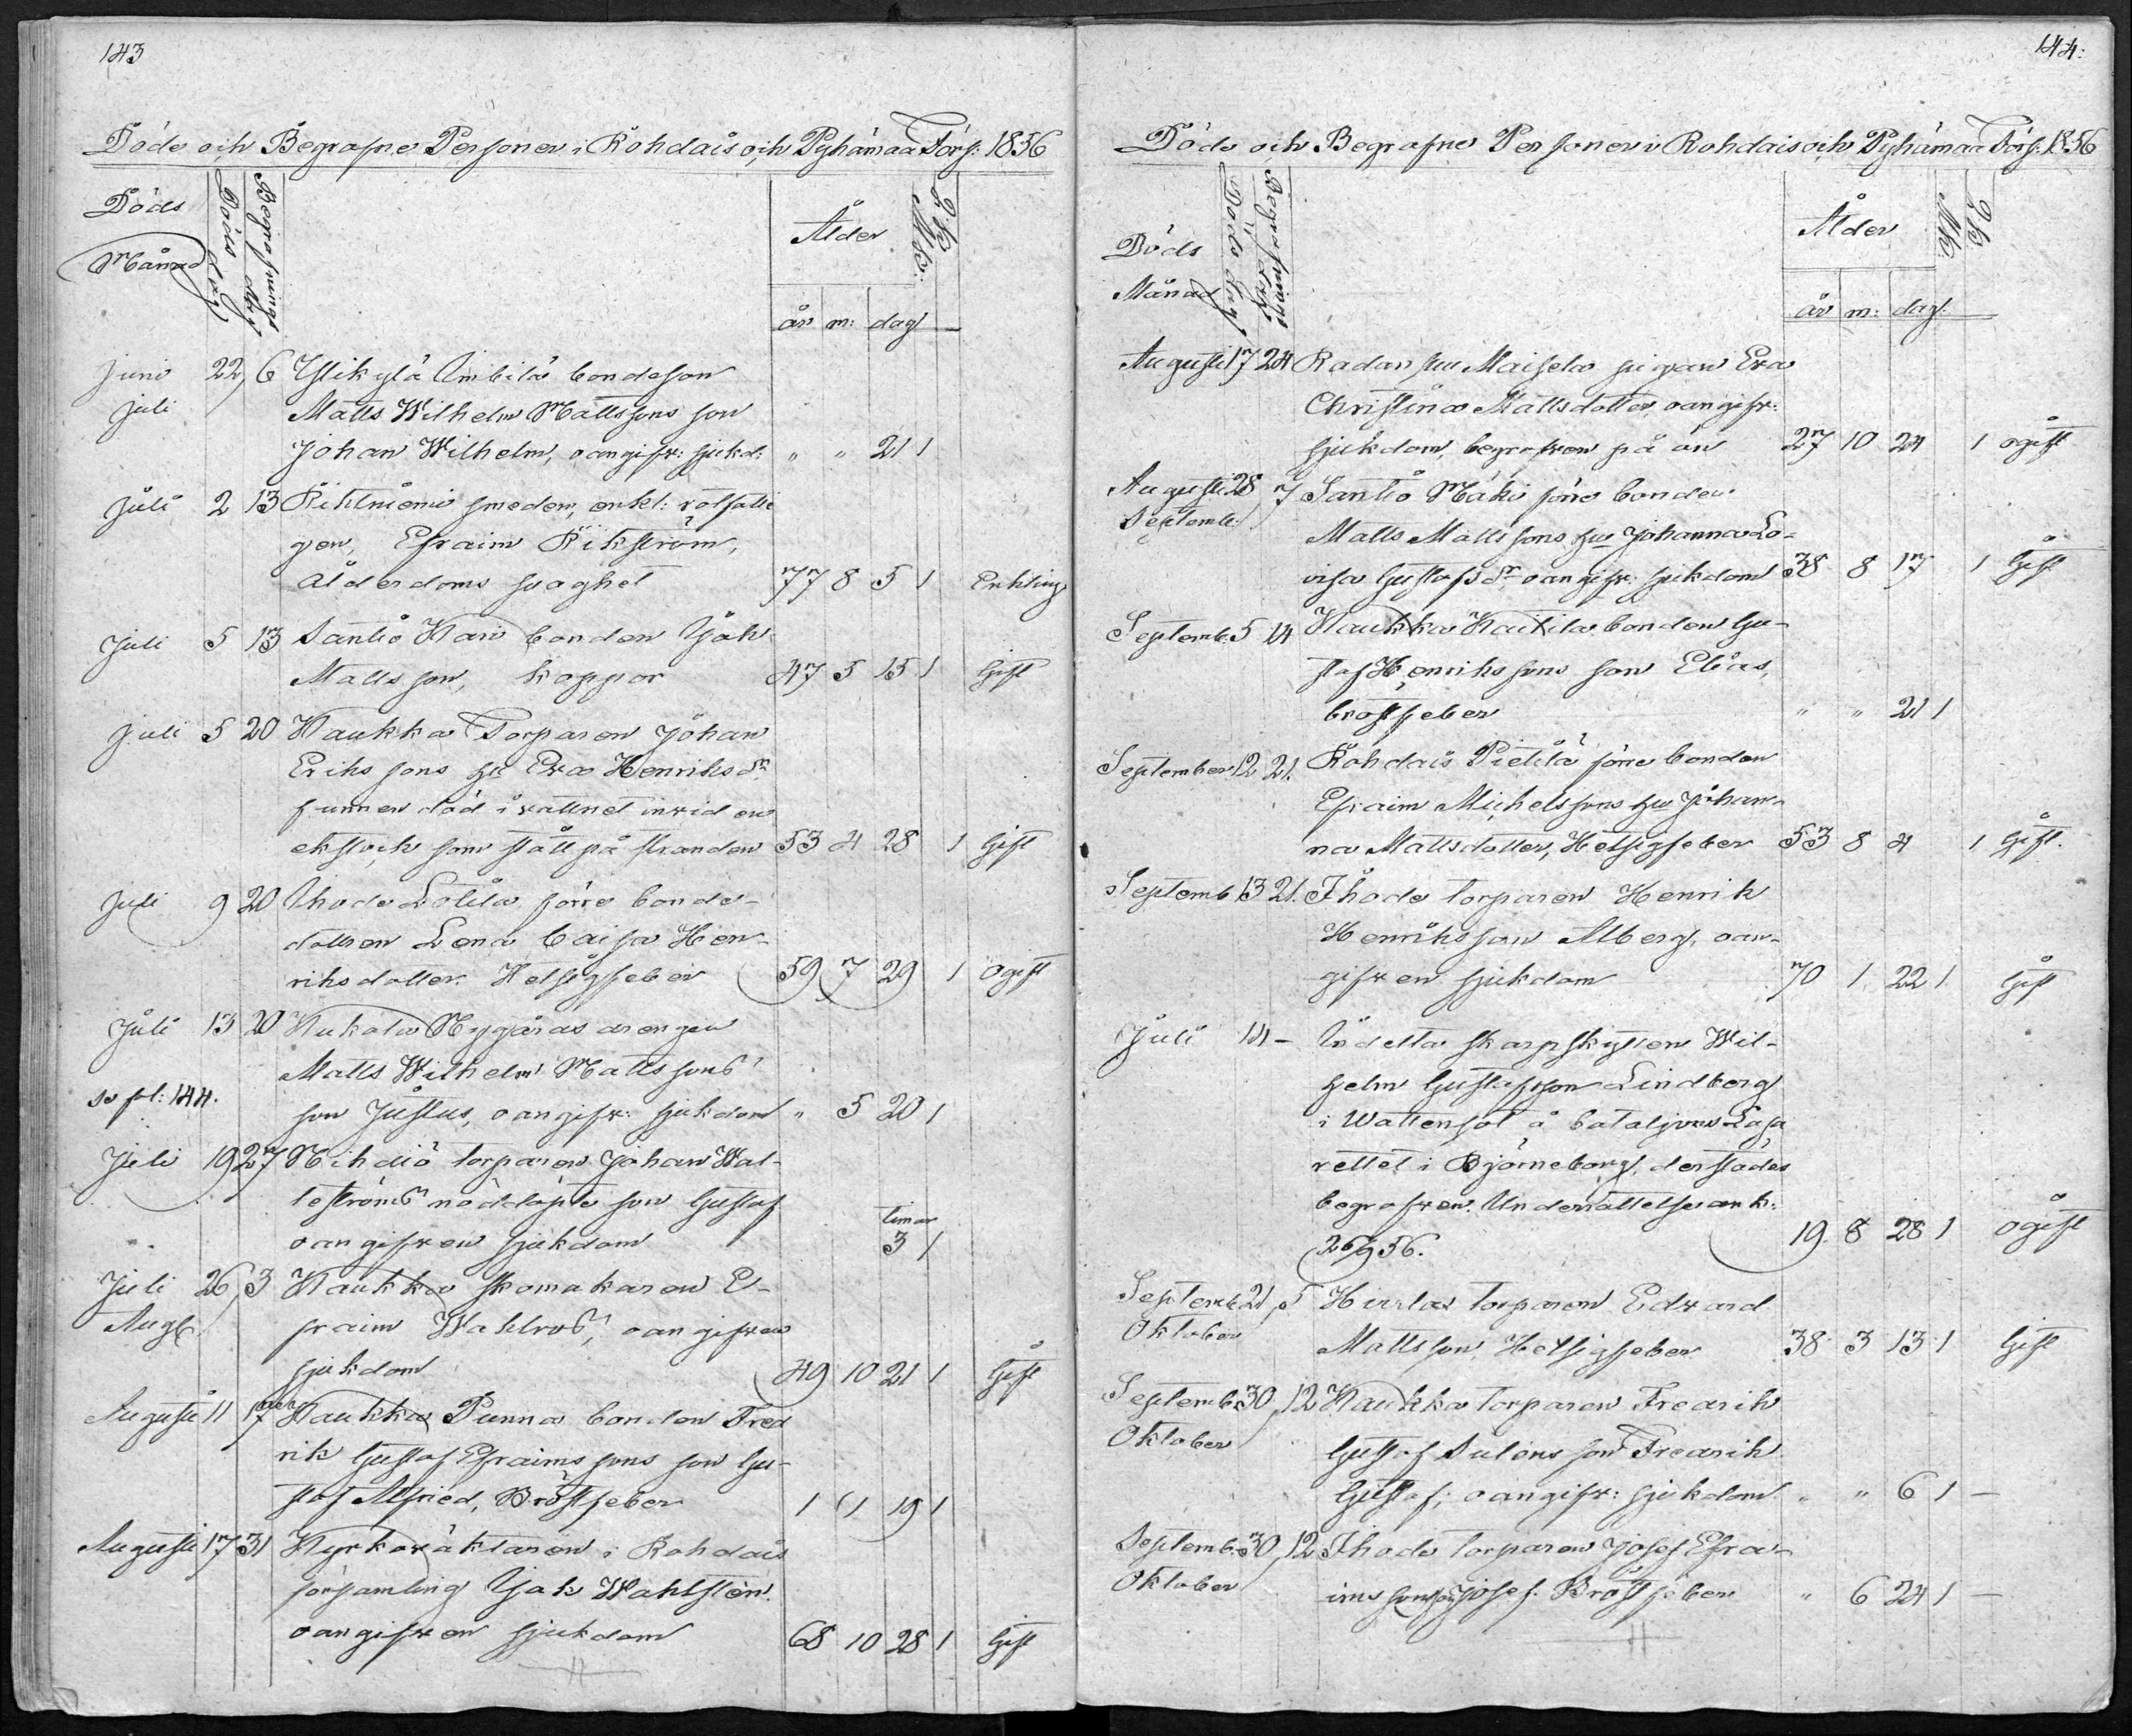 143
Döde och Begrafne Personer i Rohdais och Pyhämaa Förs: 1856
Döds Månad
Döds dag
Begrafnings dag
Ålder
Mk: Qk
år m: dag
Juni 22, 6 Ylikylä Úmbila bondeson
Juli Matts Wilhelm Mattssons son
Johan Wilhelm, oangifv: sjukd: " " 21 1
Juli 2 13 smeden, enkl: rotfatti
gen, Efraim Rikström,
Ålderdoms svaghet 77 8 5 1 Enkling
Juli 5 13 Santio Kari bonden Joh:
Mattsson, koppor 47 5 15 1 Gift
Juli 5 20 Kaukka Torparen Johan
Erikssons hu Eva Henriksdr
funnen död i vattnet invid en
ekstock som stått på stranden 53 4 28 1 Gift
Juli 9 20 Ihode förre bonde-
dottren Lena Caisa Hen-
riksdotter. Hetsigfeber 59 7 29 1 ogift
Juli 13 20 Kukola Nygåras drengen
Matts Wilhelm Mattssons
se fol: 144. son Justus, oangifv: sjukdom " 5 20 1
Juli 19 27 Nihdiö torparen Johan Wal-
leströms nöddöpte son Gustaf
oangifven sjukdom timar 3 1
Juli 26, 3 Kaukka skomakaren E-
Aug: fraim Wahlros, oangifven
sjukdom 49 10 21 1 Gift
Augusti 11 17 Kaukka Punna bonden Fred
rik Gustaf Efraimssons son Gu-
staf Alfried, Bröstfeber 1 11 19 1
Augusti 17 31 Kyrkovåktaren i Rohdais
församling Isak Wahlsten.
oangifven sjukdom 68 10 28 1 Gift
144:
Döde och Begrafne Personer i Rohdais och Pyhämaa Förs: 1856
Döds Månad
Döds dag
Begrafnings dag
Ålder
Mk: Qk
år m: dag:
Augusti 17 24 Radansuu Maisela pigan Eva
Christina Mattsdotter, oangifv:
sjukdom, begrafven på ån 27 10 24 1 ogift
Augusti 28 7 Santio Mäki förre bonden
Septemb: Matts Mattssons hu Johanna Lo-
visa Gustafsdr oangifv: sjukdom 38 8 17 1 Gift
Septemb: 5 14 Kaukka Kaitila bonden Gu-
staf Henrikssons son Elias,
bröstfeber " " 21 1
September 12 21. Rohdais Pietilä förre bonden
Efraim Michelssons hu Johan-
na Mattsdotter, Hetsigfeber 53 8 4 1 Gift.
Septemb: 13 21. Ihode torparen Henrik
Henriksson Alberg, oan-
gifven sjukdom 70 1 22 1 Gift
Juli 14 - Indelta skarpskytten Wil-
helm Gustafsson Lindberg
i Wattensot å bataljons Lasa
rettet i Björneborg, derstädes
begrafven. Underrättelse ank:
26/9 56. 19 8 28 1 ogift
Septemb: 21, 5 Hirslax torparen Edvard
Oktober Mattsson, Hetsigfeber 38 3 13 1 Gift
Septemb: 30, 12 Kaukka torparen Fredrik
Oktober Gustaf Sulens son Fredrik
Gustaf; oangifv: sjukdom " " 6 1 —
Septemb: 30, 12 Ihode torparen Josef Efra-
Oktober imssons son Josef. Bröstfeber " 6 24 1 —